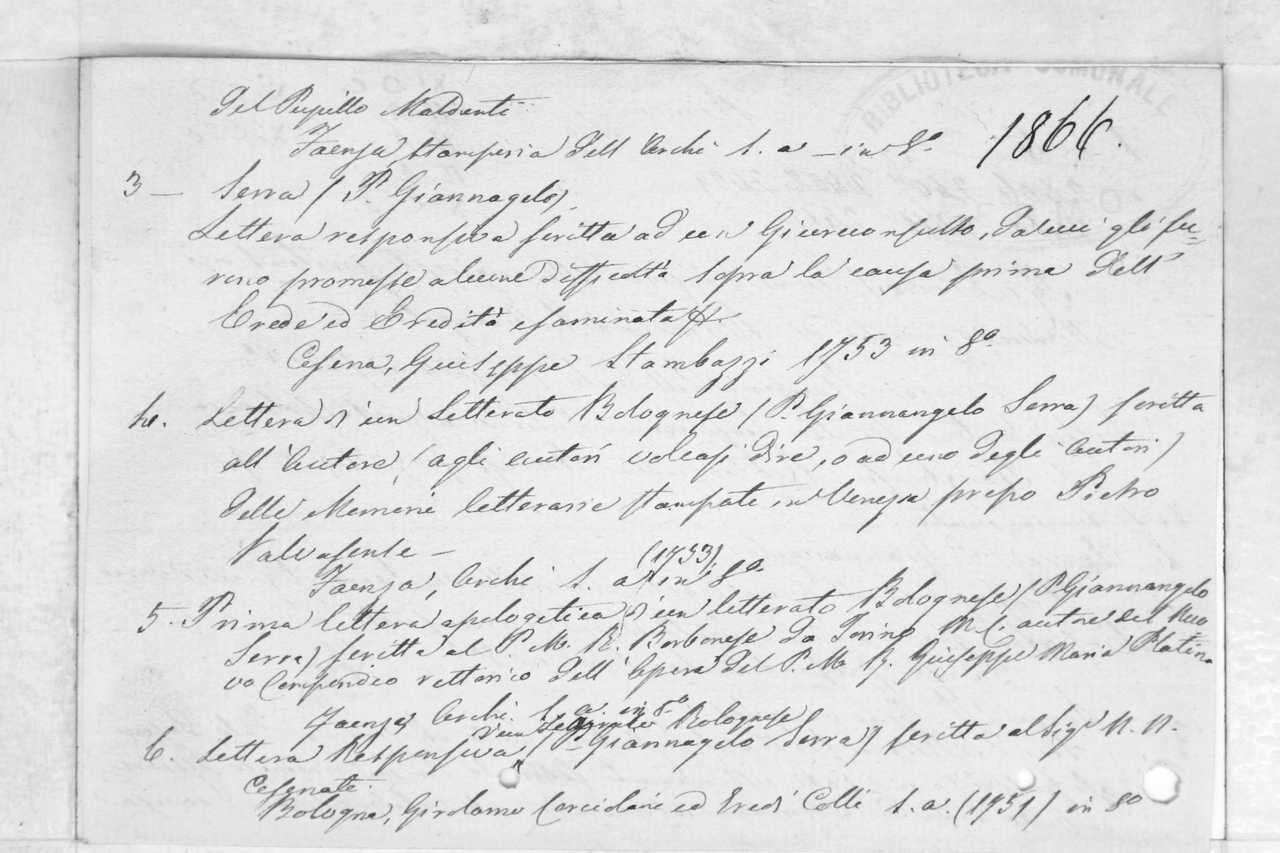 Del Pupillo Maldenti
Faenza Stamperia dell' Archi s. a — in 8°
1866.
BIBLIOTECA COMUNALE
3 — Serra (P. Giannagelo)
Lettera responsiva scritta ad un Giureconsulto, da cui gli fu-
rono promesse alcune difficoltà sopra la causa prima dell'
Erede ed Eredità esaminata
Cesena, Giuseppe Stambazzi 1753 in 8°
4. Lettera d'un Letterato Bolognese (P. Giannangelo Serra) scritta
all'Autore (agli autori voleasi dire, o ad uno degli Autori)
delle Memorie letterarie stampate in Venezia presso Pietro
Valvasense —
Faenza, Archi s. a (1753) in 8°
5. Prima lettera apologetica d'un letterato Bolognese (P Giannangelo
Serra) scritta al P. M. E. Borbonese da Torino M. C. autore del Nuo
vo Compendio rettorico dell' Opera del P. M. Giuseppe Maria Platina
Faenza Archi. s. a. in 8°
d'un Letterato Bolognese
6. Lettera Responsiva (P. Giannagelo Serra) scritta al Sig' N. N.
Cesenate
Bologna, Girolamo Corciolani ed Eredi Colli s. a. (1751) in 8°